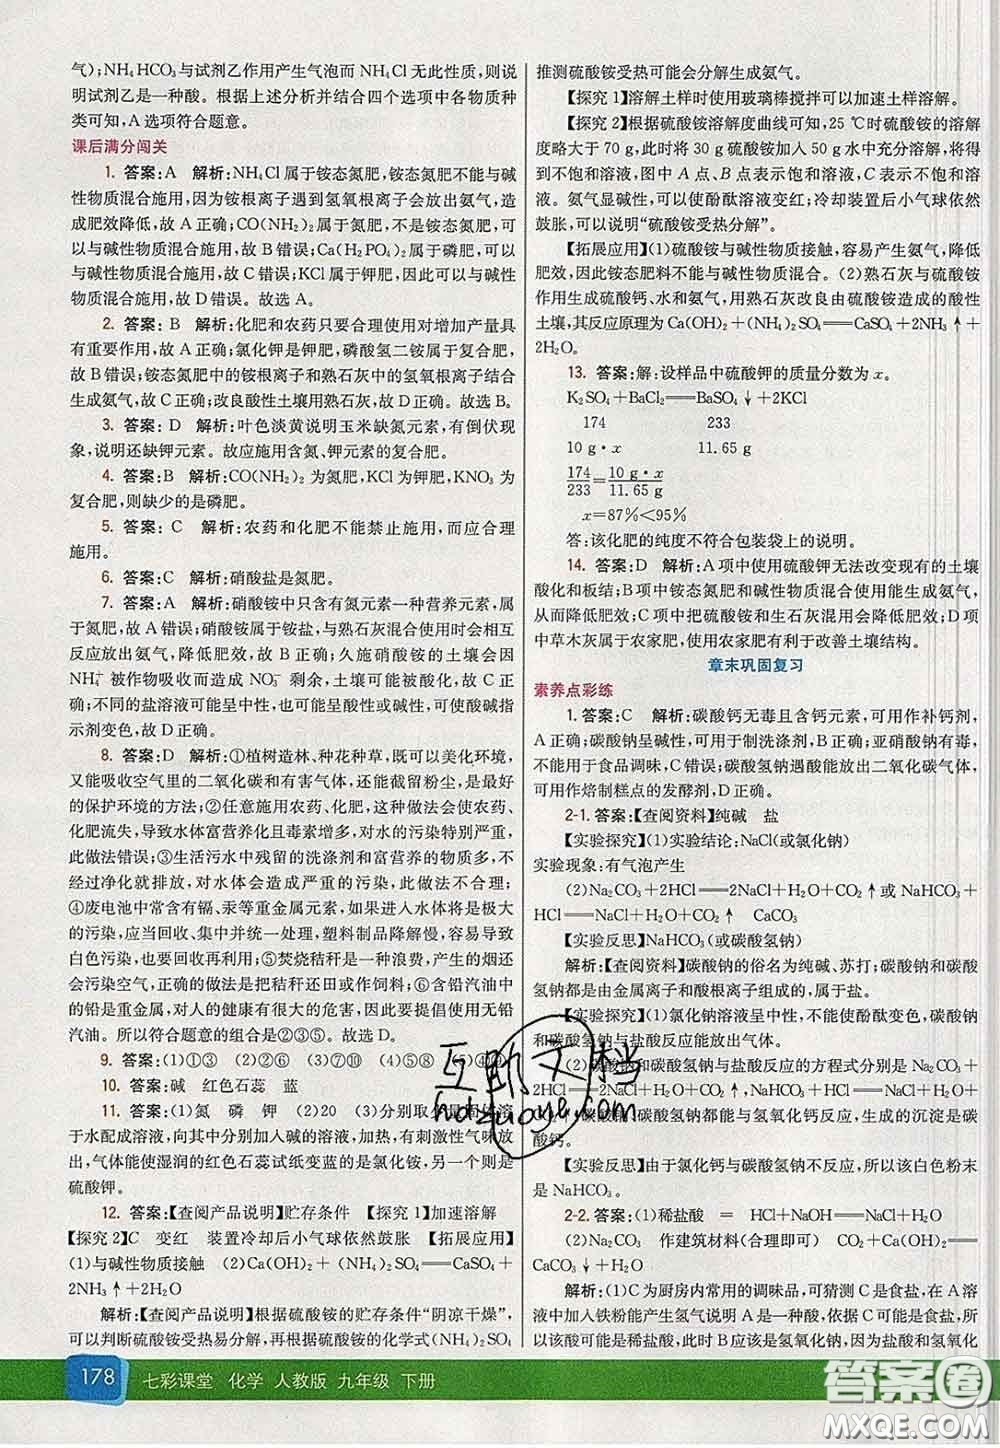 气);NH₄HCO₃与试剂乙作用产生气泡而NH₄Cl无此性质,则说
明试剂乙是一种酸。根据上述分析并结合四个选项中各物质种
类可知,A选项符合题意。
课后满分闯关
1. 答案:A 解析:NH₄Cl属于铵态氮肥,铵态氮肥不能与碱
性物质混合施用,因为铵根离子遇到氢氧根离子会产生氨气,造
成肥效降低,故A正确;CO(NH₂)₂属于氮肥,不是铵态氮肥,可
以与碱性物质混合施用,故B错误;Ca(H₂PO₄)₂属于磷肥,可以
与碱性物质混合施用,故C错误;KCl属于钾肥,因此可以与碱性
物质混合施用,故D错误。故选A。
2. 答案:B 解析:化肥和农药只要合理使用对增加产量具
有重要作用,故A正确;氯化钾是钾肥,磷酸氢二铵属于复合肥,
故B错误;铵态氮肥中的铵根离子与熟石灰中的氢氧根离子结合
生成氨气,故C正确;改良酸性土壤用熟石灰,故D正确。故选B。
3. 答案:D 解析:叶色淡黄说明玉米缺氮元素,有倒伏现
象,说明还缺钾元素。故应施用含氮、钾元素的复合肥。
4. 答案:B 解析:CO(NH₂)₂为氮肥,KCl为钾肥,KNO₃为
复合肥,则缺少的是磷肥。
5. 答案:C 解析:农药和化肥不能禁止施用,而应合理
施用。
6. 答案:C 解析:硝酸盐是氮肥。
7. 答案:A 解析:硝酸铵中只含有氮元素一种营养元素,属
于氮肥,故A错误;硝酸铵属于铵盐,与熟石灰混合施用会相互
反应放出氨气,降低肥效,故B正确;久施硝酸铵的土壤会因
NH₄⁺被作物吸收而造成NO₃⁻剩余,土壤可能变酸,故C正确;
不同的盐溶液可能呈中性,也可能呈酸性或碱性,故可以用酸碱
指示剂来测定,故D正确。
8. 答案:D 解析:①植树造林、种花种草,既可以美化环境,
又能吸收空气里的二氧化碳和有害气体,还能截留粉尘,是最好
的保护环境的方法;②任意施用农药、化肥,这种做法会使农药、
化肥流失,导致水体富营养化且毒素增多,对水的污染特别严重,
此做法错误;③生活污水中残留的洗涤剂和富营养的物质多,不
经过净化就排放,对水体会造成严重的污染,此做法不合理;
④废电池中含有镉、汞等重金属元素,如果进入水体将是极大
的污染,应当回收、集中并统一处理,塑料制品降解慢,容易造成
白色污染,也要回收再利用;⑤焚烧秸秆是一种浪费,产生的烟还
会污染空气,正确的做法是把秸秆还田或作饲料;⑥含铅汽油中
的铅是重金属,对人的健康有很大的危害,因此要提倡使用无铅
汽油。所以符合题意的组合是②③⑤。故选D。
9. 答案:(1)①③ (2)②⑥ (3)⑦⑩ (4)⑤⑧
10. 答案:碱 红色石蕊 蓝
11. 答案:(1)氮 磷 钾 (2)20 (3)分别取少量固体溶
于水配成溶液,向其中分别加入碱的溶液,加热,有刺激性气味放
出,气体能使湿润的红色石蕊试纸变蓝的是氯化铵,另一个则是
硫酸钾。
12. 答案:【查阅产品说明】贮存条件 【探究1】加速溶解
【探究2】C 变红 装置冷却后小气球依然鼓胀 【拓展应用】
(1)与碱性物质接触 (2)Ca(OH)₂+(NH₄)₂SO₄══CaSO₄+
2NH₃↑+2H₂O
解析:【查阅产品说明】根据硫酸铵的贮存条件“阴凉干燥”,
可以判断硫酸铵受热易分解,再根据硫酸铵的化学式(NH₄)₂SO₄
推测硫酸铵受热可能会分解生成氨气。
【探究1】溶解土样时使用玻璃棒搅拌可以加速土样溶解。
【探究2】根据硫酸铵溶解度曲线可知,25 ℃时硫酸铵的溶解
度略大于70 g,此时将30 g硫酸铵加入50 g水中充分溶解,会得
到不饱和溶液,图中A点、B点表示饱和溶液,C表示不饱和溶
液。氨气显碱性,可以使酚酞溶液变红;冷却装置后小气球依然
鼓胀,可以说明“硫酸铵受热分解”。
【拓展应用】(1)硫酸铵与碱性物质接触,容易产生氨气,降低
肥效,因此铵态肥料不能与碱性物质混合。(2)熟石灰与硫酸铵
作用生成硫酸钙、水和氨气,用熟石灰改良由硫酸铵造成的酸性
土壤,其反应原理为Ca(OH)₂+(NH₄)₂SO₄══CaSO₄+2NH₃↑+
2H₂O。
13. 答案:解:设样品中硫酸钾的质量分数为x。
K₂SO₄+BaCl₂══BaSO₄↓+2KCl
174 233
10 g·x 11.65 g
174/233=10 g·x/11.65 g
x=87%<95%
答:该化肥的纯度不符合包装袋上的说明。
14. 答案:D 解析:A项中使用硫酸钾无法改变现有的土壤
酸化和板结;B项中铵态氮肥和碱性物质混合使用能生成氨气,
从而降低肥效;C项中把硫酸铵和生石灰混用会降低肥效;D项
中草木灰属于农家肥,使用农家肥有利于改善土壤结构。
章末巩固复习
素养点彩练
1. 答案:C 解析:碳酸钙无毒且含钙元素,可用作补钙剂,
A正确;碳酸钠呈碱性,可用于制洗涤剂,B正确;亚硝酸钠有毒,
不能用于食品调味,C错误;碳酸氢钠遇酸能放出二氧化碳气体,
可用作焙制糕点的发酵剂,D正确。
2-1. 答案:【查阅资料】纯碱 盐
【实验探究】(1)实验结论:NaCl(或氯化钠)
实验现象:有气泡产生
(2)Na₂CO₃+2HCl══2NaCl+H₂O+CO₂↑或NaHCO₃+
HCl══NaCl+H₂O+CO₂↑ CaCO₃
【实验反思】NaHCO₃(或碳酸氢钠)
解析:【查阅资料】碳酸钠的俗名为纯碱、苏打;碳酸钠和碳酸
氢钠都是由金属离子和酸根离子组成的,属于盐。
【实验探究】(1)氯化钠溶液呈中性,不能使酚酞变色,碳酸钠
和碳酸氢钠与盐酸反应能放出气体。
(2)碳酸钠和碳酸氢钠与盐酸反应的方程式分别是Na₂CO₃+
2HCl══2NaCl+H₂O+CO₂↑、NaHCO₃+HCl══NaCl+H₂O+
CO₂↑,碳酸钠和碳酸氢钠都能与氢氧化钙反应,生成的沉淀是碳
酸钙。
【实验反思】由于氯化钙与碳酸氢钠不反应,所以该白色粉末
是NaHCO₃。
2-2. 答案:(1)稀盐酸 = HCl+NaOH══NaCl+H₂O
(2)Na₂CO₃ 作建筑材料(合理即可) CO₂+Ca(OH)₂══
CaCO₃↓+H₂O
解析:(1)C为厨房内常用的调味品,可猜测C是食盐,在A溶
液中加入铁粉能产生氢气说明A是一种酸,依据C可能是食盐,所
以该酸可能是稀盐酸,此时B应该是氢氧化钠,因为盐酸和氢氧化
178 七彩课堂 化学 人教版 九年级 下册
互助文档
hdzuoye.com
答案圈
MXQE.COM